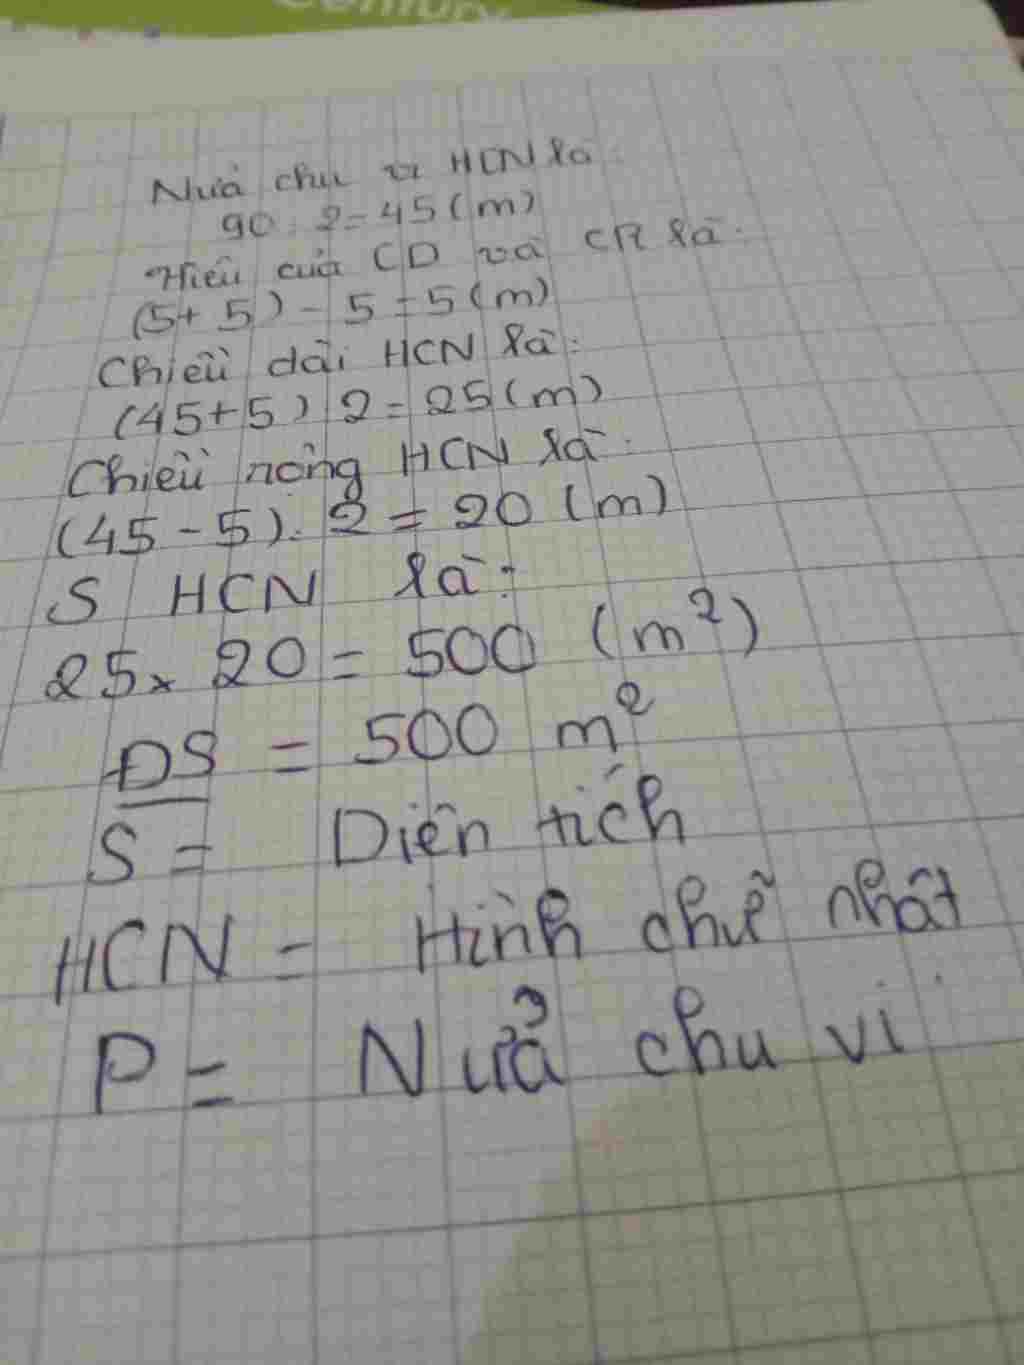 Century
Nửa chu vi HCN là:
90 : 2 = 45 (m)
Hiệu của CD và CR là:
(5 + 5) - 5 = 5 (m)
Chiều dài HCN là:
(45 + 5) : 2 = 25 (m)
Chiều rộng HCN là:
(45 - 5) : 2 = 20 (m)
S HCN là:
25 x 20 = 500 (m²)
ĐS = 500 m²
S = Diện tích
HCN = Hình chữ nhật
P = Nửa chu vi